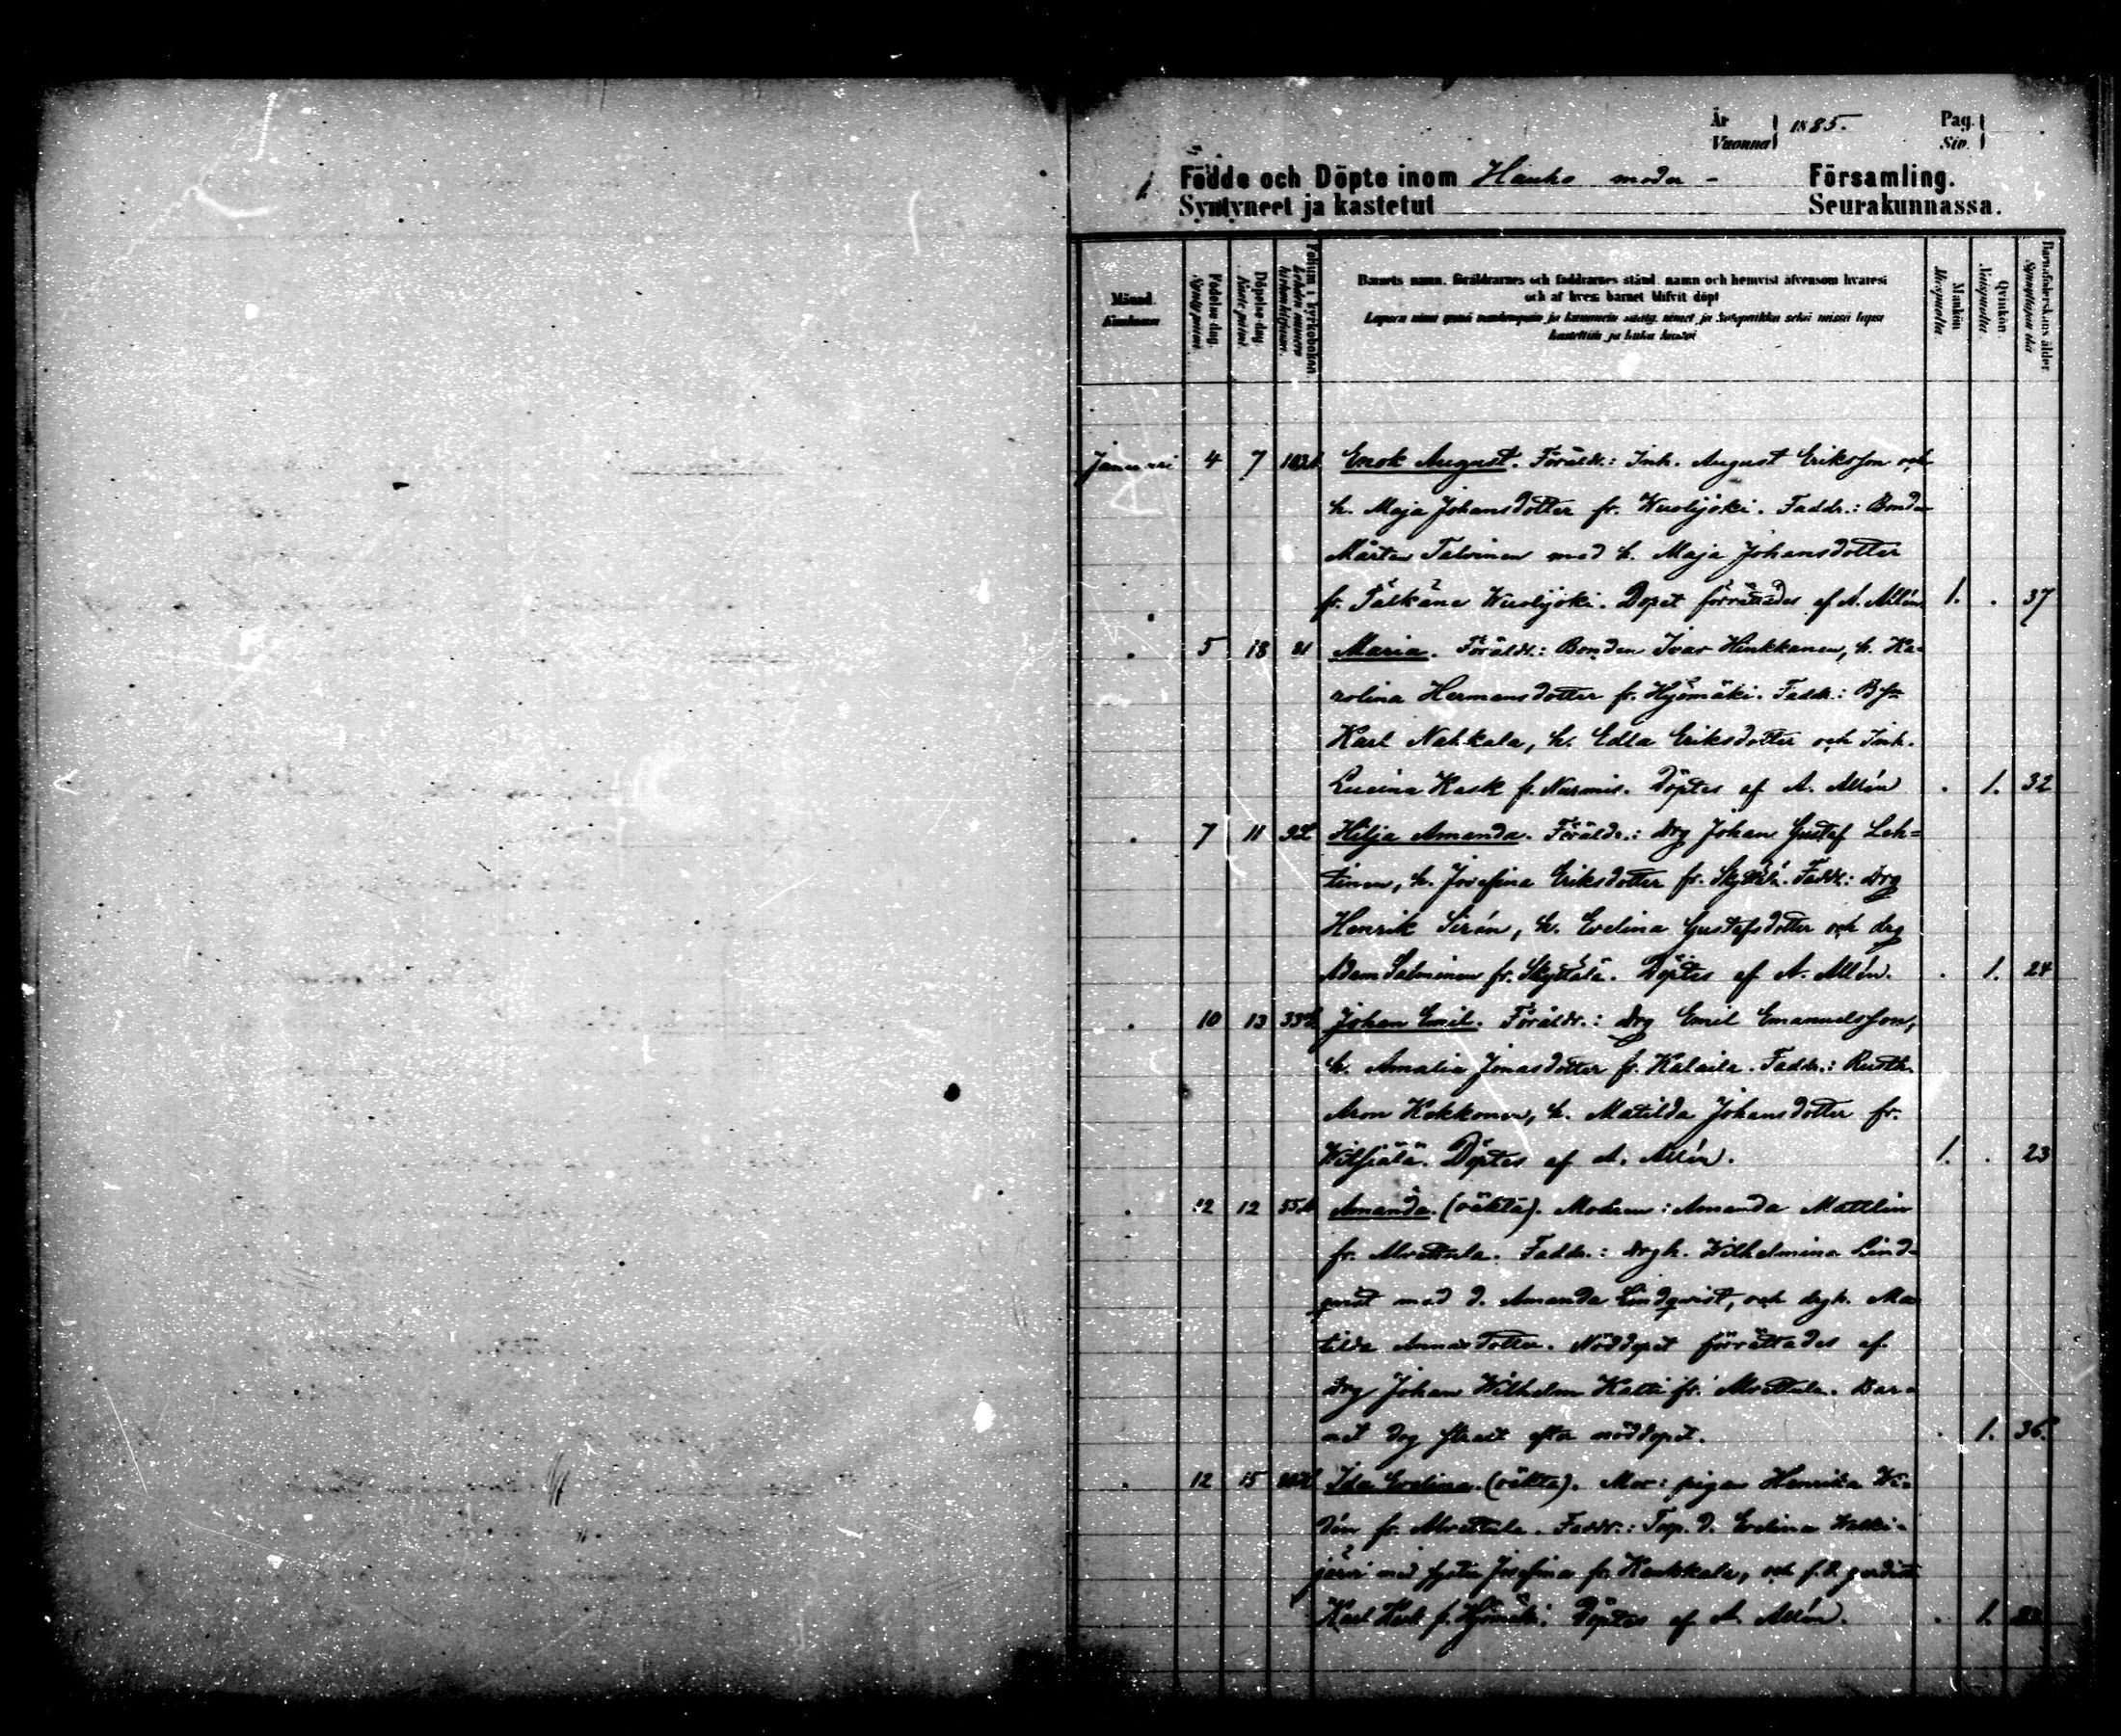 År 1885. Pag.
Vuonna Siv.
Födde och Döpte inom Hauho moder- Församling.
Syntyneet ja kastetut Seurakunnassa.
Månad.
Kuukausi
Födelse dag.
Synty päivä.
Döpelse dag
Kaste päivä.
Folium i kyrkoboken
Lehden numero kirkonkirjassa.
Barnets namn, föräldrarnes och faddrarnes stånd, namn och hemvist äfvensom hvarest
och af hvem barnet blifvit döpt
Lapsen nimi ja kummein sääty, nimet ja kotopaikka sekä missä lapsi
kastettiin ja kuka kastoi
Mankön
Miespuolia.
Qvinkön
Naispuolia.
Barnaföderskans ålder
Synnyttäjän ikä
Januari 4 7 Enok August. Föräldr.: Inh. August Eriksson och
h. Maja Johansdotter fr. Wuolijoki. Faddr.: Bonden
Mårten Talvinen med h. Maja Johansdotter
fr. Pälkäne Wuolijoki. Dopet förrättades af A. Allén. 1. . 37
. 5 18 81 Maria. Föräldr.: Bonden Ivar Hinkkanen, h. Ka-
rolina Hermansdotter fr. Hyömäki. Faddr.:
Karl Nahkala, h. Edla Eriksdotter och Inh.
Lucina Kask fr. Nurmis. Döptes af A. Allén . 1. 32
. 7 11 Hilja Amanda. Föräldr.: drg Johan Gustaf Leh-
tinen, h. Josefina Eriksdotter fr. Faddr.: drg
Henrik Sirén, h. Evelina Gustafsdotter och drg
Adam Salminen fr. Skyttälä. Döptes af A. Allén. . 1. 24
. 10 13 Johan Emil. Föräldr.: drg Emil Emanuelsson,
h. Amalia Jonasdotter fr. Kalaila. Faddr.: Rusth.
Aron Kokkonen, h. Matilda Johansdotter fr.
Döptes af A. Allén. 1. . 23
. 12 12 Amanda. (oäkta). Modren: Amanda Mattlin
fr. Alvettula. Faddr.: drgh. Wilhelmina Lind-
qvist med d. Amanda Lindqvist, och drgh. Ma-
tilda Annasdotter. Nöddopet förrättades af
drg Johan Wilhelm Katti fr. Alvettula. Bar-
net dog straxt efter nöddopet. . 1. 36.
. 12 15 Ida Evelina. (oäkta). Mor: pigan Henrika Wi-
dén fr. Alvettula. Faddr.: Torp. d. Evelina Walki-
järvi med syster Josefina fr. Haukkala, och f. d.
Karl fr. Hyömäki. Döptes af A. Allén. . 1.